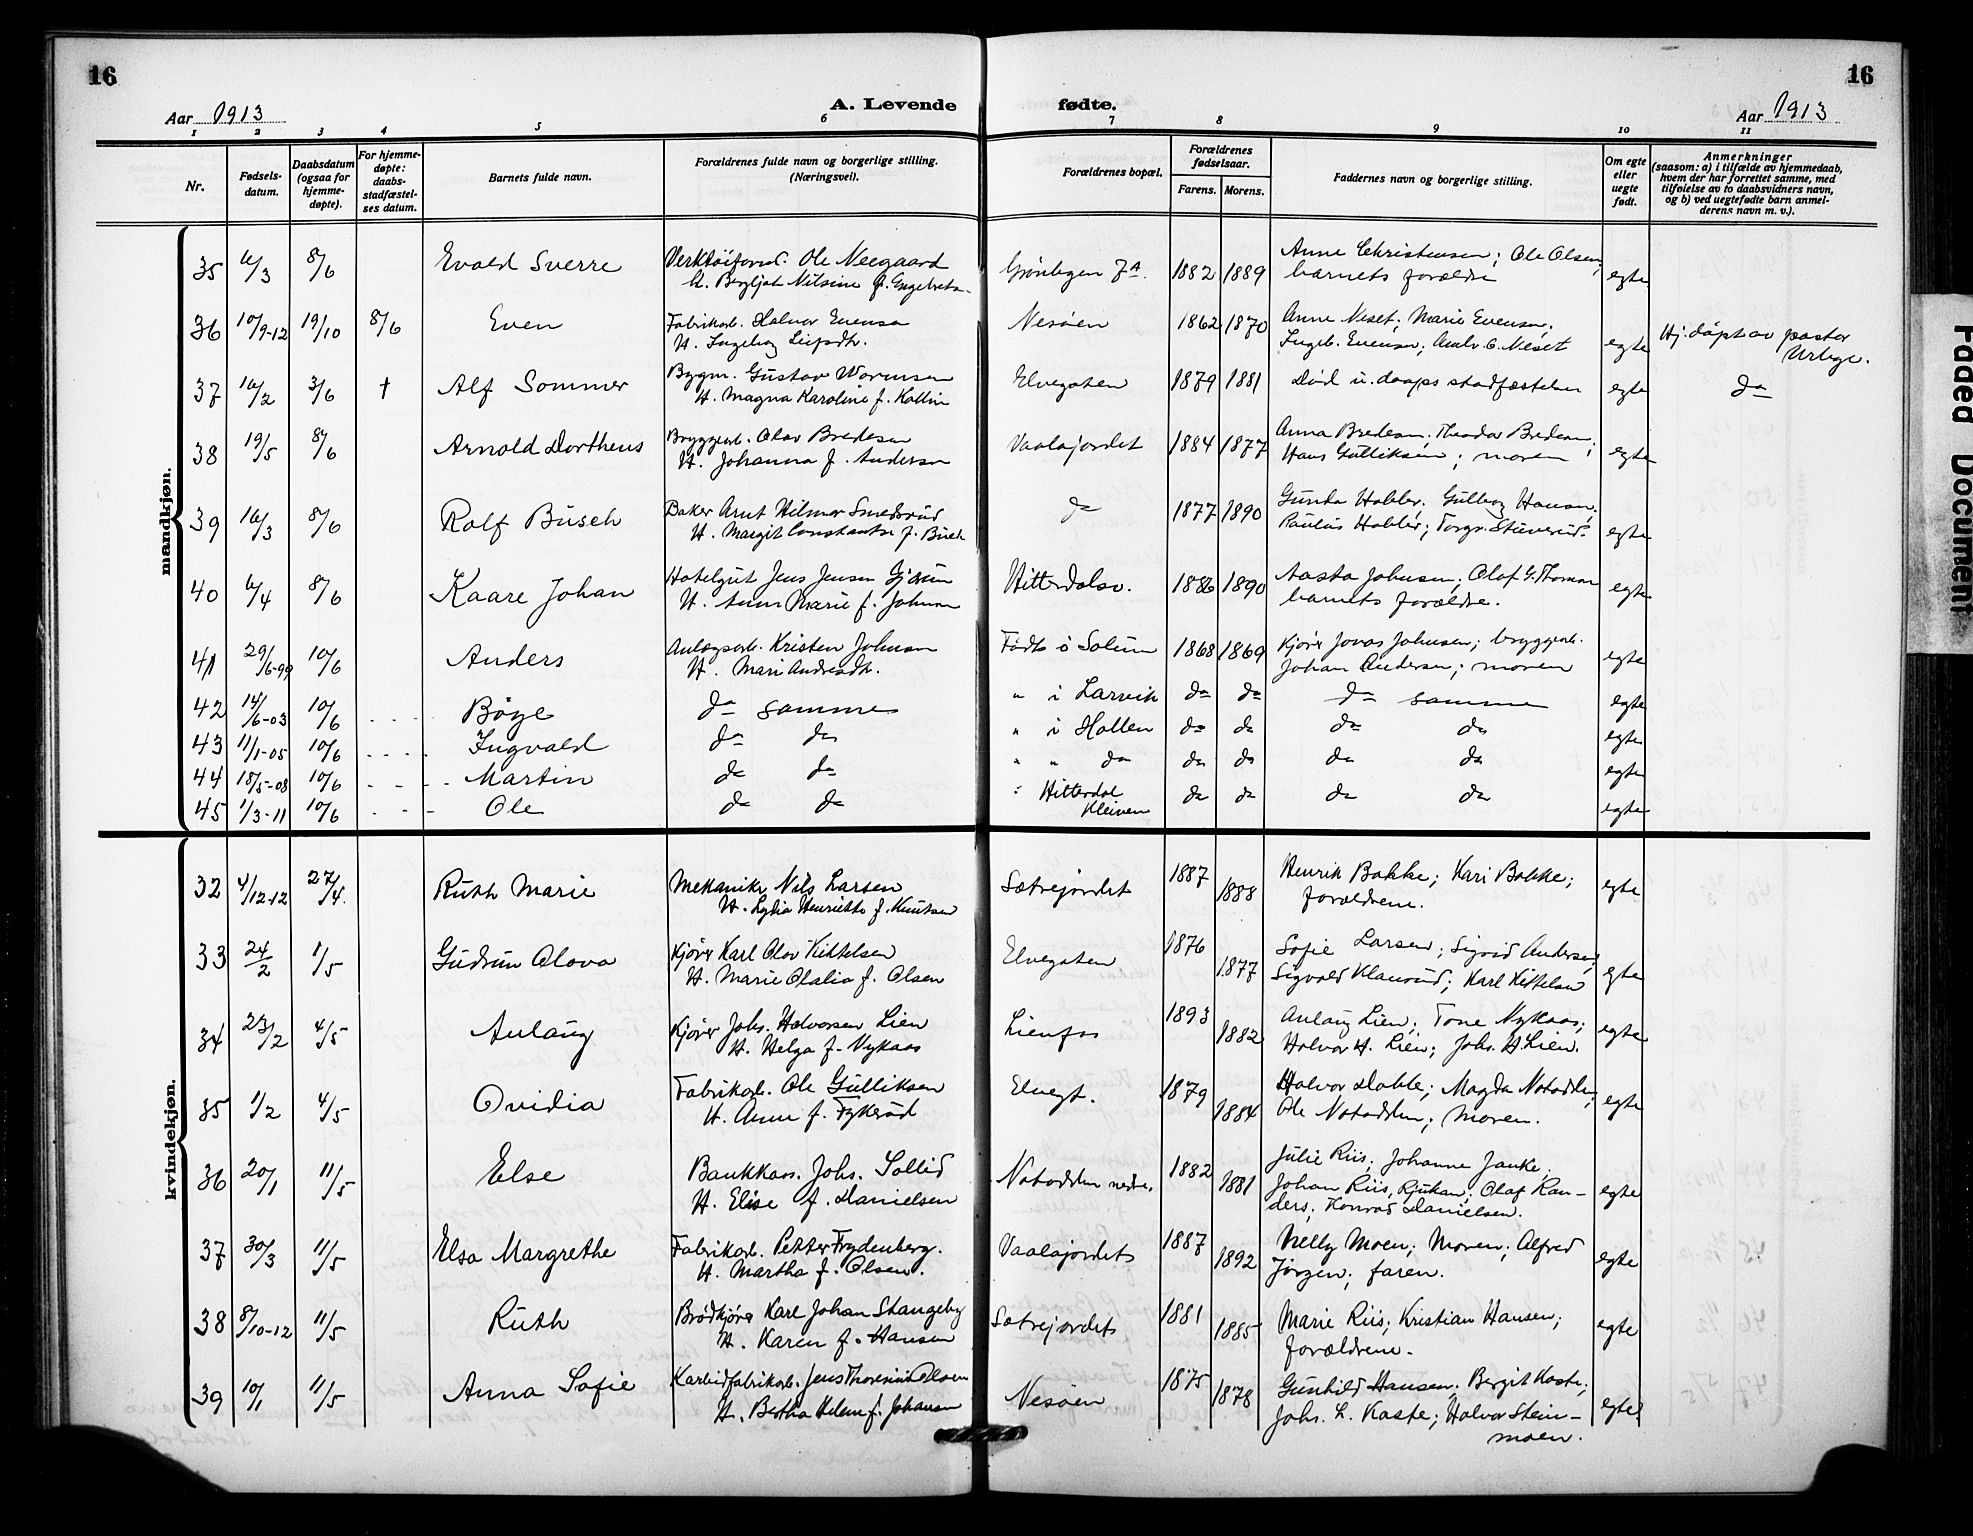 16
16
Aar 1913
A. Levende fødte.
Aar 1913
1 2 3 4 5 6 7 8 9 10 11
Nr.
Fødsels-
datum.
Daabsdatum
(ogsaa for
hjemme-
døpte).
For hjemme-
døpte:
daabs-
stadfæstel-
ses datum.
Barnets fulde navn.
Forældrenes fulde navn og borgerlige stilling.
(Næringsvei).
Forældrenes bopæl.
Forældrenes
fødselsaar.
Farens. Morens.
Faddernes navn og borgerlige stilling.
Om egte
eller
uegte
født.
Anmerkninger
(saasom: a) i tilfælde av hjemmedaab,
hvem der har forrettet samme, med
tilføielse av to daabsvidners navn,
og b) ved uegtefødte barn anmel-
derens navn m. v.).
mandkjøn.
35 6/3 8/6 Evald Sverre Ole Neegaard 1882 1889 Anne Christensen; Ole Olsen;
H. Bergljot Nilsine f. Engebrets. barnets forældre egte
36 10/9-12 19/10 8/6 Even Fabrikarb. Halvor Evensen Nesøen 1862 1870 Anne Neset; Marie Evensen;
H. Ingeborg Leifsdtr. Ingeb. Evensen; Neset egte Hj. døpt av pastor
37 16/2 3/6 † Alf Sommer Bygm. Gustav Wormsen Elvegaten 1879 1881 Død u. daaps stadfæstelse egte do
H. Magna Karoline f. Kallin
38 19/5 8/6 Arnold Dortheus Bryggearb. Olav Bredesen Vaalajordet 1884 1877 Anna Bredesen; Theodor Bredesen;
H. Johanna f. Andersen Hans Gulliksen; moren egte
39 16/3 8/6 Rolf Busch Baker Arnt Hilmar Smedsrud do 1877 1890 Gunda Holbler; Gulborg Hansen;
H. Margit Constantse f. Busch Paulus Holbler; Torgr. Stuverud. egte
40 6/4 8/6 Kaare Johan Hotelgut Jens Jensen Hitterdalsv. 1886 1890 Aasta Johnsen; Olaf G. Thomsen
H. Anna Marie f. Johnsen barnets forældre. egte
41 29/6-99 10/6 Anders Anlægsarb. Kristen Johnsen Født i Solum 1868 1869 Kjører Jonas Johnsen; bryggearb.
H. Mari Andersdtr. Johan Andersen; moren egte
42 14/6-03 10/6 Børge do samme " i Larvik do do do samme egte
43 11/1-05 10/6 Ingvald do do " i Hollen do do do do egte
44 18/5-08 10/6 Martin do do " " do do do do do egte
45 1/3-11 10/6 Ole do do " Hitterdal do do do do egte
Kleiven
kvindekjøn.
32 4/12-12 27/4. Ruth Marie Mekaniker Nils Larsen Sætrejordet 1887 1888 Henrik Bakke; Kari Bakke;
H. Lydia Henriette f. Knutsen forældrene. egte
33 24/2 1/5 Gudrun Olava Kjører Karl Olav Kittelsen Elvegaten 1876 1877 Sofie Larsen; Sigrid Andersen;
H. Marie Olalia f. Olsen Sigvald Klausrud; Karl Kittelsen egte
34 23/2 4/5 Aulaug Kjører Johs. Halvorsen Lien Lienfos 1893 1882 Aulaug Lien; Tone Nykaas;
H. Helga f. Nykaas Halvor H. Lien; Johs. H. Lien. egte
35 1/2 4/5 Ovidia Fabrikarb. Ole Gulliksen Elvegt. 1879 1884 Halvor Dahle; Magda Notodden;
H. Anne f. Tykerud Ole Notodden; moren. egte
36 20/1 11/5 Else Bankkass. Johs. Sollid Notodden nedre, 1882 1881 Julie Riis; Johanne Janke.
H. Elise f. Danielsen Johan Riis, Rjukan; Olaf Ran-
ders; Konrad Danielsen. egte
37 30/3 11/5 Elsa Margrethe Fabrikarb. Petter Frydenberg. Vaalajordet 1887 1892 Nelly Moen; Moren; Alfred
H. Martha f. Olsen. Jørgen; faren. egte
38 8/10-12 11/5 Ruth Brødkjører Karl Johan Stangeby Sætrejordet 1881 1885 Marie Riis; Kristian Hansen;
H. Karen f. Hansen forældrene. egte
39 10/1 11/5 Anna Sofie Karbidfabrikarb. Jens Thorenius Olsen Nesøen 1875 1878 Gunhild Hansen; Bergit Kaste;
H. Bertha Helene f. Johansen Johs. L. Kaste; Halvor Stein-
moen. egte
Faded Document